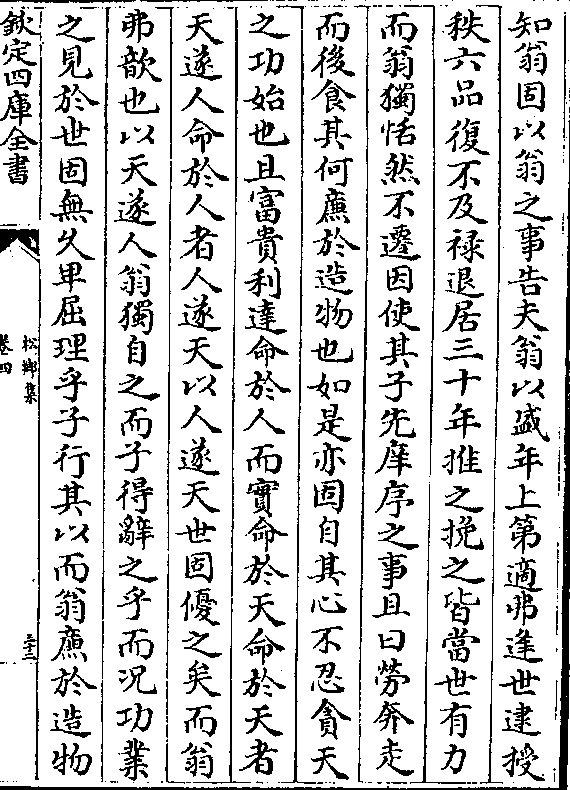 知翁固以翁之事告夫翁以盛年上第適弗逢世逮授
秩六品復不及禄退居三十年推之挽之皆當世有力
而翁獨恬然不遷因使其子先庠序之事且曰勞奔走
而後食其何廉於造物也如是亦固自其心不忍貪天
之功始也且富貴利達命於人而實命於天命於天者
天遂人命於人者人遂天以人遂天世固優之矣而翁
弗歆也以天遂人翁獨自之而子得辭之乎而况功業
之見於世固無久卑屈理乎子行其以而翁廉於造物
欽定四庫全書
松鄉集
卷四
二十二